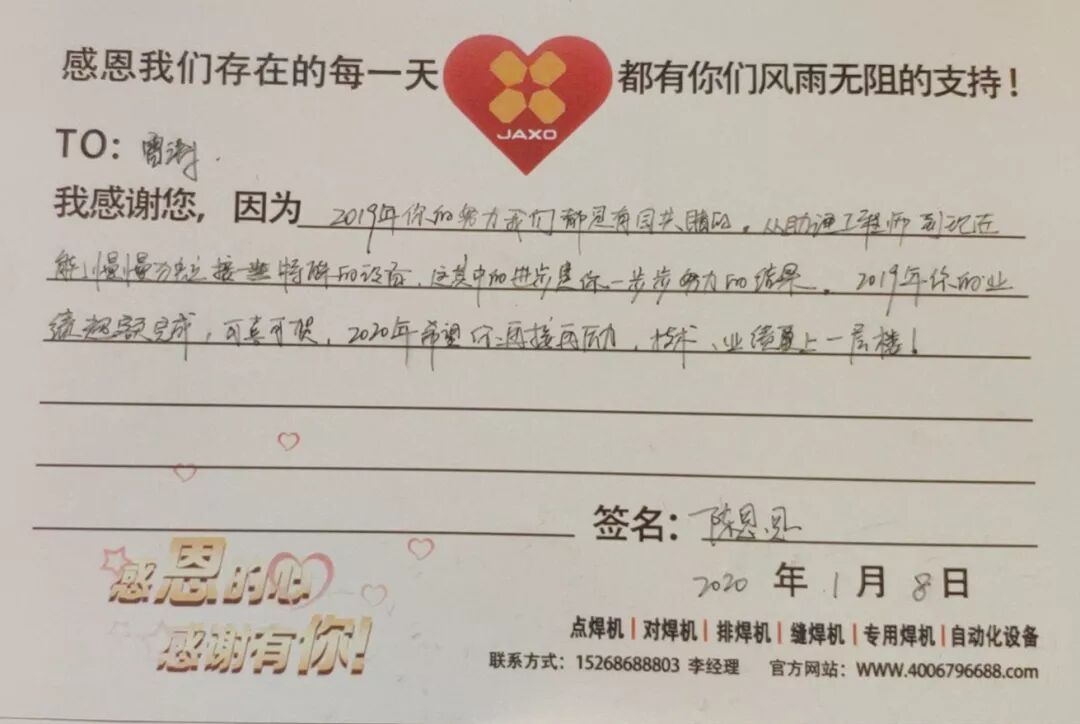 感恩我们存在的每一天 都有你们风雨无阻的支持！
JAXO
TO：
我感谢您，因为 2019年你的努力我们都是有目共睹的。从助理工程师到现在
能慢慢独立接一些特殊的设备，这其中的进步是你一步步努力的结果。2019年你的业
绩超额完成，可喜可贺，2020年希望你再接再厉，技术、业绩更上一层楼！
签名：陈恩恩
2020 年 1 月 8 日
感恩的心
感谢有你！
点焊机|对焊机|排焊机|缝焊机|专用焊机|自动化设备
联系方式：15268688803 李经理 官方网站：WWW.4006796688.com